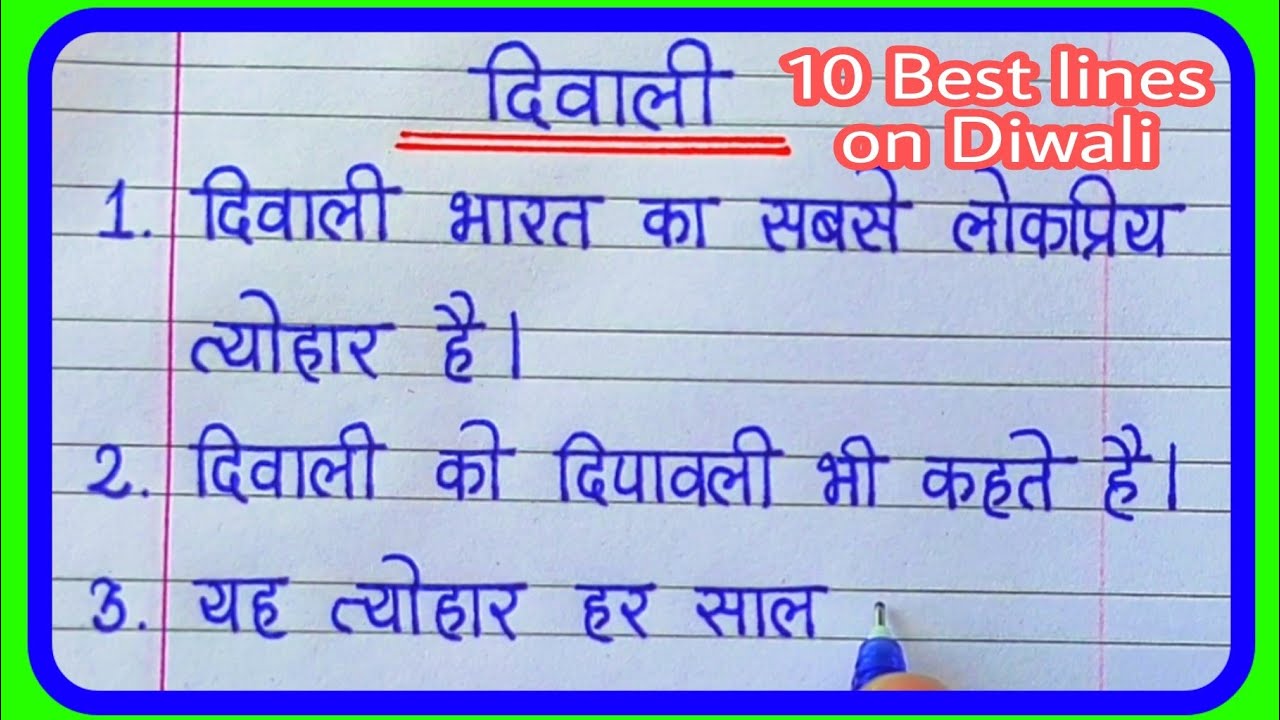 दिवाली
10 Best lines
on Diwali
1. दिवाली भारत का सबसे लोकप्रिय
त्योहार है।
2. दिवाली को दिपावली भी कहते है।
3. यह त्योहार हर साल